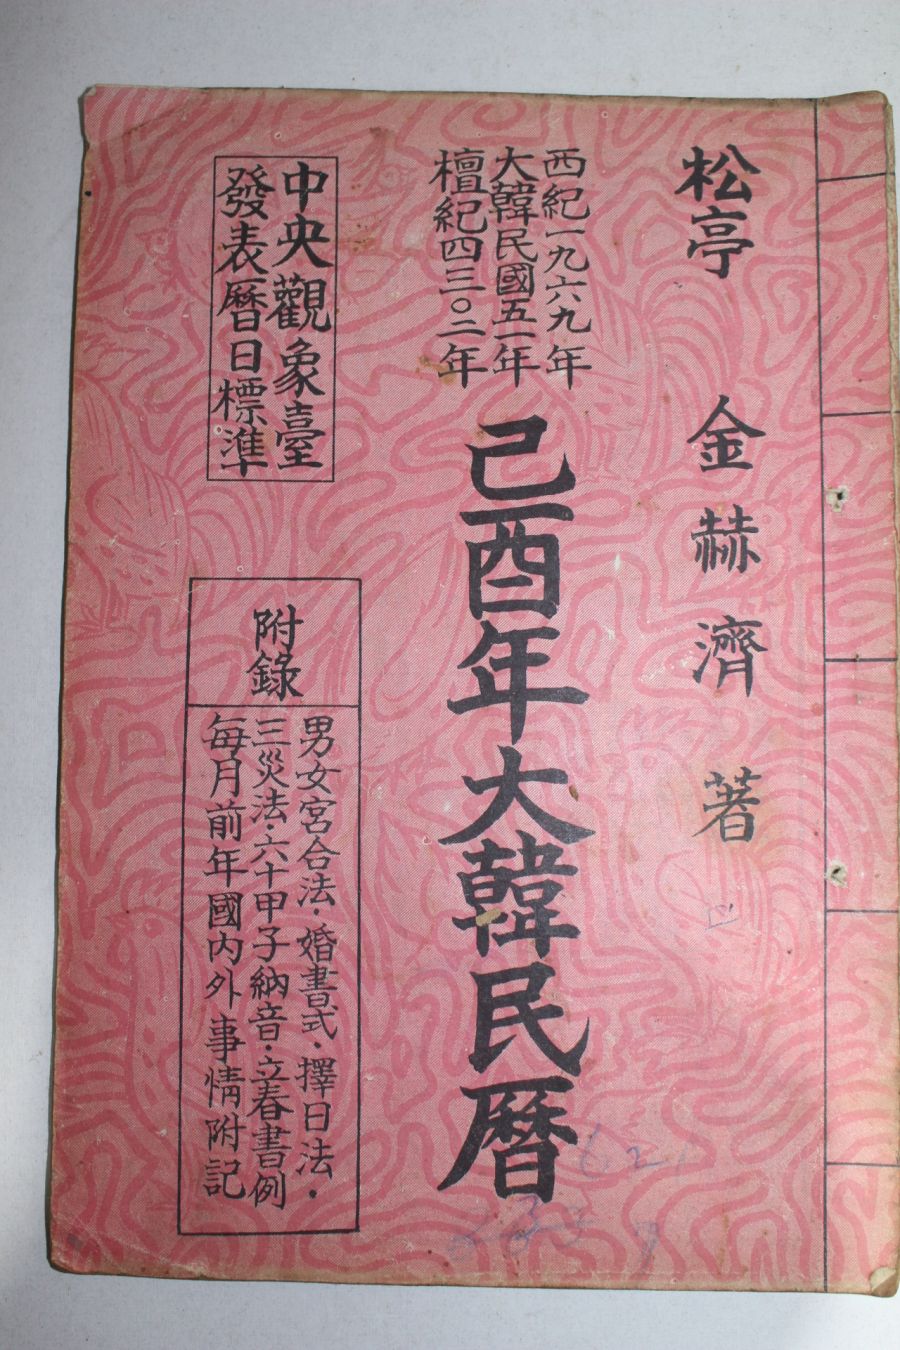 松亭 金赫濟 著
西紀一九六九年
大韓民國五一年
檀紀四三〇二年
己酉年大韓民曆
中央觀象臺
發表曆日標準
附錄
男女宮合法·婚書式·擇日法·
三災法·六十甲子納音·立春書例
每月前年國內外事情附記